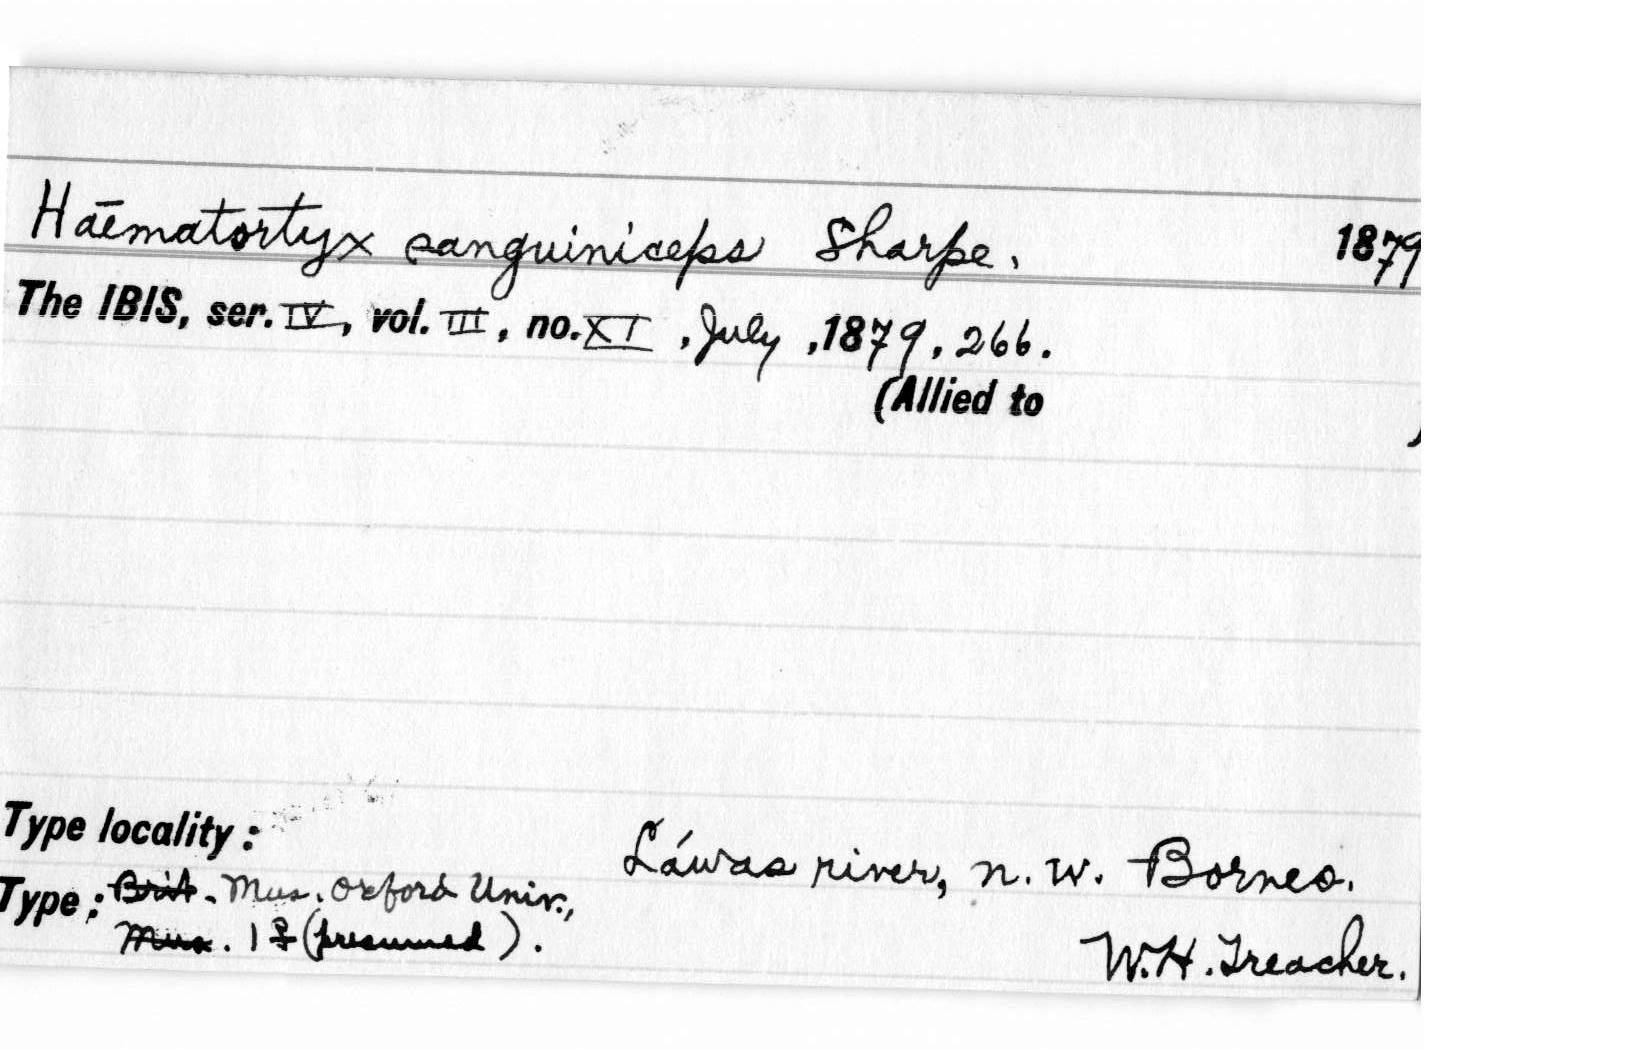 Haematortyx sanguiniceps Sharpe. 1879
The IBIS, ser. IV, vol. III, no. XI, July, 1879, 266.
(Allied to )
Type locality: Láwas river, n.w. Borneo.
Type: Brit. Mus. Oxford Univ.,
Mus. 1 ♀ (presumed).
W.H. Treacher.